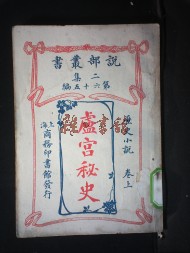 說部叢書
二集
第六十五編
歷史小說 卷上
盧宮秘史
上海
商務印書館發行